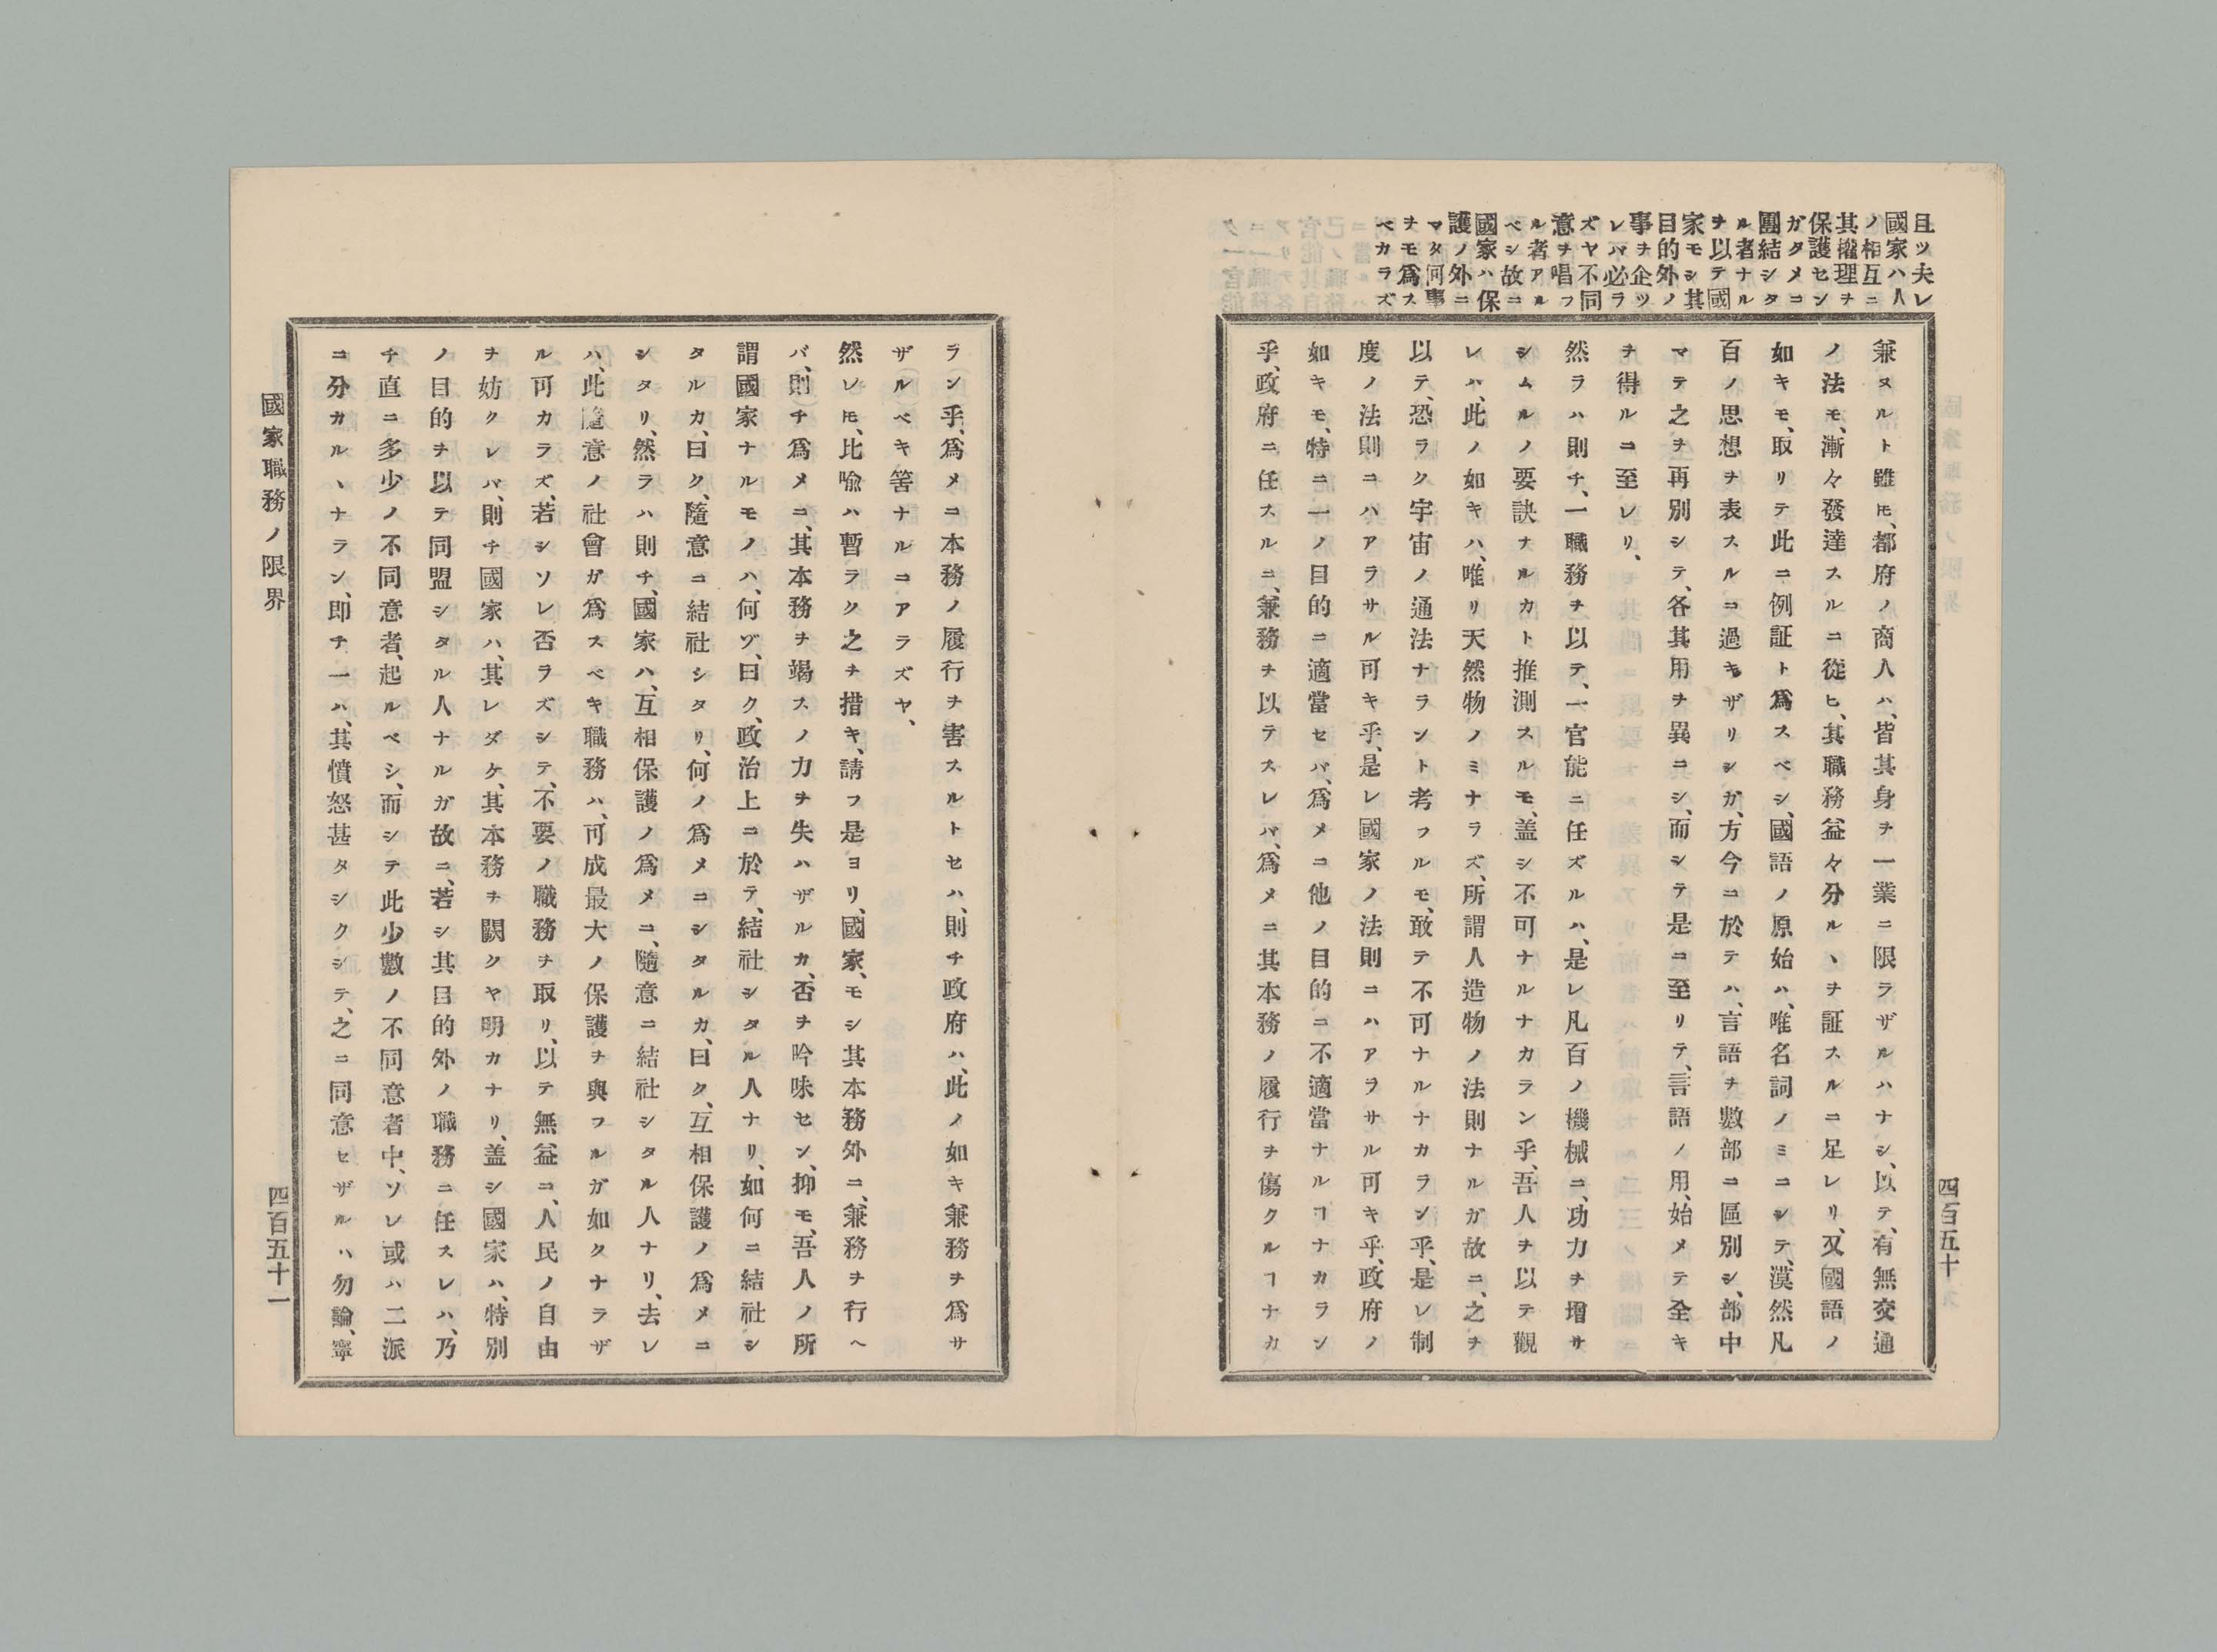 且ツ夫レ
國家ハ人
ノ相互ニ
其權理ヲ
保護セン
ガタメニ
團結シタ
ル者ナル
ヲ以テ國
家モシ其
目的外ノ
事ヲ企ツ
レバ必ラ
ズヤ不同
意ヲ唱フ
ル者アル
ベシ故ニ
國家ハ保
護ノ外ニ
マタ何事
ヲモ爲ス
ベカラズ
四百五十
兼ヌルト雖𪜈、都府ノ商人ハ、皆其身ヲ一業ニ限ラザルハナシ、以テ、有無交通
ノ法モ、漸々發達スルニ從ヒ、其職務益々分ルヽヲ証スルニ足レリ、又國語ノ
如キモ、取リテ此ニ例証ト爲スベシ、國語ノ原始ハ、唯名詞ノミニシテ、漠然凡
百ノ思想ヲ表スルニ過キザリシガ、方今ニ於テハ、言語ヲ數部ニ區別シ、部中
マテ之ヲ再別シテ、各其用ヲ異ニシ、而シテ是ニ至リテ、言語ノ用、始メテ全キ
ヲ得ルニ至レリ、
然ラハ則チ、一職務ヲ以テ、一官能ニ任ズルハ、是レ凡百ノ機械ニ、功力ヲ増サ
シムルノ要訣ナルカト推測スルモ、盖シ不可ナルナカラン乎、吾人ヲ以テ觀
レハ、此ノ如キハ、唯リ天然物ノミナラズ、所謂人造物ノ法則ナルガ故ニ、之ヲ
以テ、恐ラク宇宙ノ通法ナラント考フルモ、敢テ不可ナルナカラン乎、是レ制
度ノ法則ニハアラサル可キ乎、是レ國家ノ法則ニハアヲサル可キ乎、政府ノ
如キモ、特ニ一ノ目的ニ適當セバ、爲メニ他ノ目的ニ不適當ナルヿナカラン
乎、政府ニ任スルニ、兼務ヲ以テスレバ、爲メニ其本務ノ履行ヲ傷クルヿナカ
ラン乎、爲メニ本務ノ履行ヲ害スルトセハ、則チ政府ハ、此ノ如キ兼務ヲ爲サ
ザルベキ筈ナルニアラズヤ、
然レ𪜈、比喩ハ暫ラク之ヲ措キ、請フ是ヨリ、國家、モシ其本務外ニ、兼務ヲ行ヘ
バ、則チ爲メニ、其本務ヲ竭スノ力ヲ失ハザルカ、否ヲ吟味セン、抑モ、吾人ノ所
謂國家ナルモノハ、何ゾ、曰ク、政治上ニ於テ、結社シタル人ナリ、如何ニ結社シ
タルカ、曰ク、隨意ニ結社シタリ、何ノ爲メニシタルカ、曰ク、互相保護ノ爲メニ
シタリ、然ラハ則チ、國家ハ、互相保護ノ爲メニ、隨意ニ結社シタル人ナリ、去レ
ハ、此隨意ノ社會ガ爲スベキ職務ハ、可成最大ノ保護ヲ與フルガ如クナラザ
ル可カラズ、若シソレ否ラズシテ、不要ノ職務ヲ取リ、以テ無益ニ、人民ノ自由
ヲ妨クレバ、則チ國家ハ、其レダケ、其本務ヲ闕クヤ明カナリ、盖シ國家ハ、特別
ノ目的ヲ以テ同盟シタル人ナルガ故ニ、若シ其目的外ノ職務ニ任スレハ、乃
チ直ニ多少ノ不同意者、起ルベシ、而シテ此少數ノ不同意者中、ソレ或ハ二派
ニ分カルヽナラン、即チ一ハ、其憤怒甚タシクシテ、之ニ同意セザルハ勿論、寧
國家職務ノ限界
四百五十一